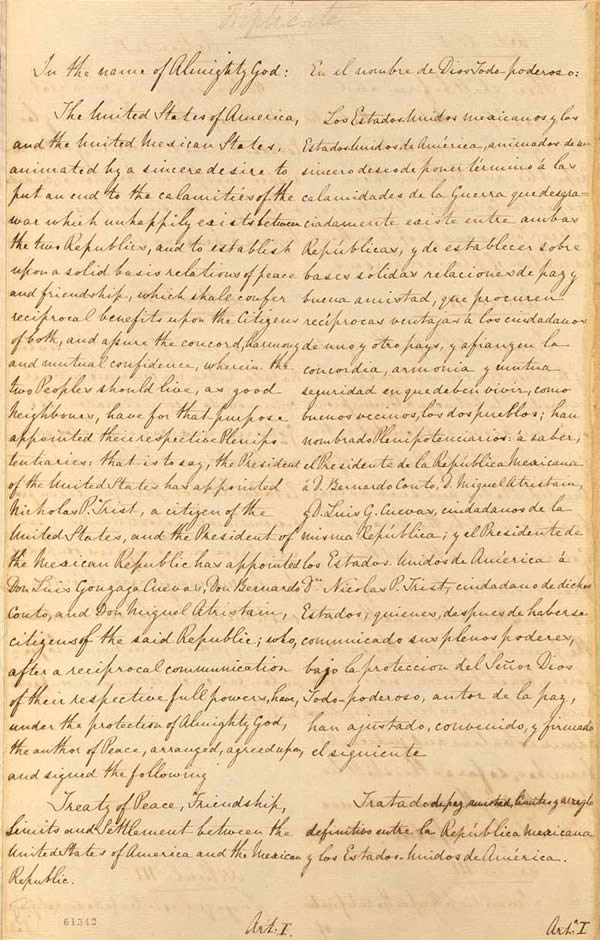 Triplicate
In the name of Almighty God:
The United States of America,
and the United Mexican States,
animated by a sincere desire to
put an end to the calamities of the
war which unhappily exists between
the two Republics, and to establish
upon a solid basis relations of peace
and friendship, which shall confer
reciprocal benefits upon the Citizens
of both, and assure the concord, harmony
and mutual confidence, wherein the
two Peoples should live, as good
Neighbours, have for that purpose
appointed their respective Plenipo-
tentiaries: that is to say, the President
of the United States has appointed
Nicholas P. Trist, a citizen of the
United States, and the President of
the Mexican Republic has appointed
Don Luis Gonzaga Cuevas, Don Bernardo
Couto, and Don Miguel Atristain,
citizens of the said Republic; who,
after a reciprocal communication
of their respective full powers, have,
under the protection of Almighty God,
the author of Peace, arranged, agreed upon,
and signed the following
Treaty of Peace, Friendship,
Limits and Settlement between the
United States of America and the Mexican
Republic.
61342
Art. I.
En el nombre de Dios Todo-poderoso:
Los Estados Unidos mexicanos y los
Estados Unidos de América, animados de un
sincero deseo de poner término á las
calamidades de la Guerra que desgra-
ciadamente existe entre ambas
Repúblicas, y de establecer sobre
bases sólidas relaciones de paz y
buena amistad, que procuren
recíprocas ventajas á los ciudadanos
de uno y otro pays, y afianzen la
concordia, armonia y mutua
seguridad en que deben vivir, como
buenos vecinos, los dos pueblos; han
nombrado Plenipotenciarios: á saber,
el Presidente de la República Mexicana
á D. Bernardo Couto, D. Miguel Atristain,
y D. Luis G. Cuevas, ciudadanos de la
misma República; y el Presidente de
los Estados-Unidos de América á
Dn. Nicolas P. Trist, ciudadano de dichos
Estados; quienes, despues de haberse
comunicado sus plenos poderes,
bajo la proteccion del Señor Dios
Todo-poderoso, autor de la paz,
han ajustado, convenido, y firmado
el siguiente
Tratado de paz, amistad, límites y arreglo
definitivo entre la República Mexicana
y los Estados-Unidos de América.
Arto. I